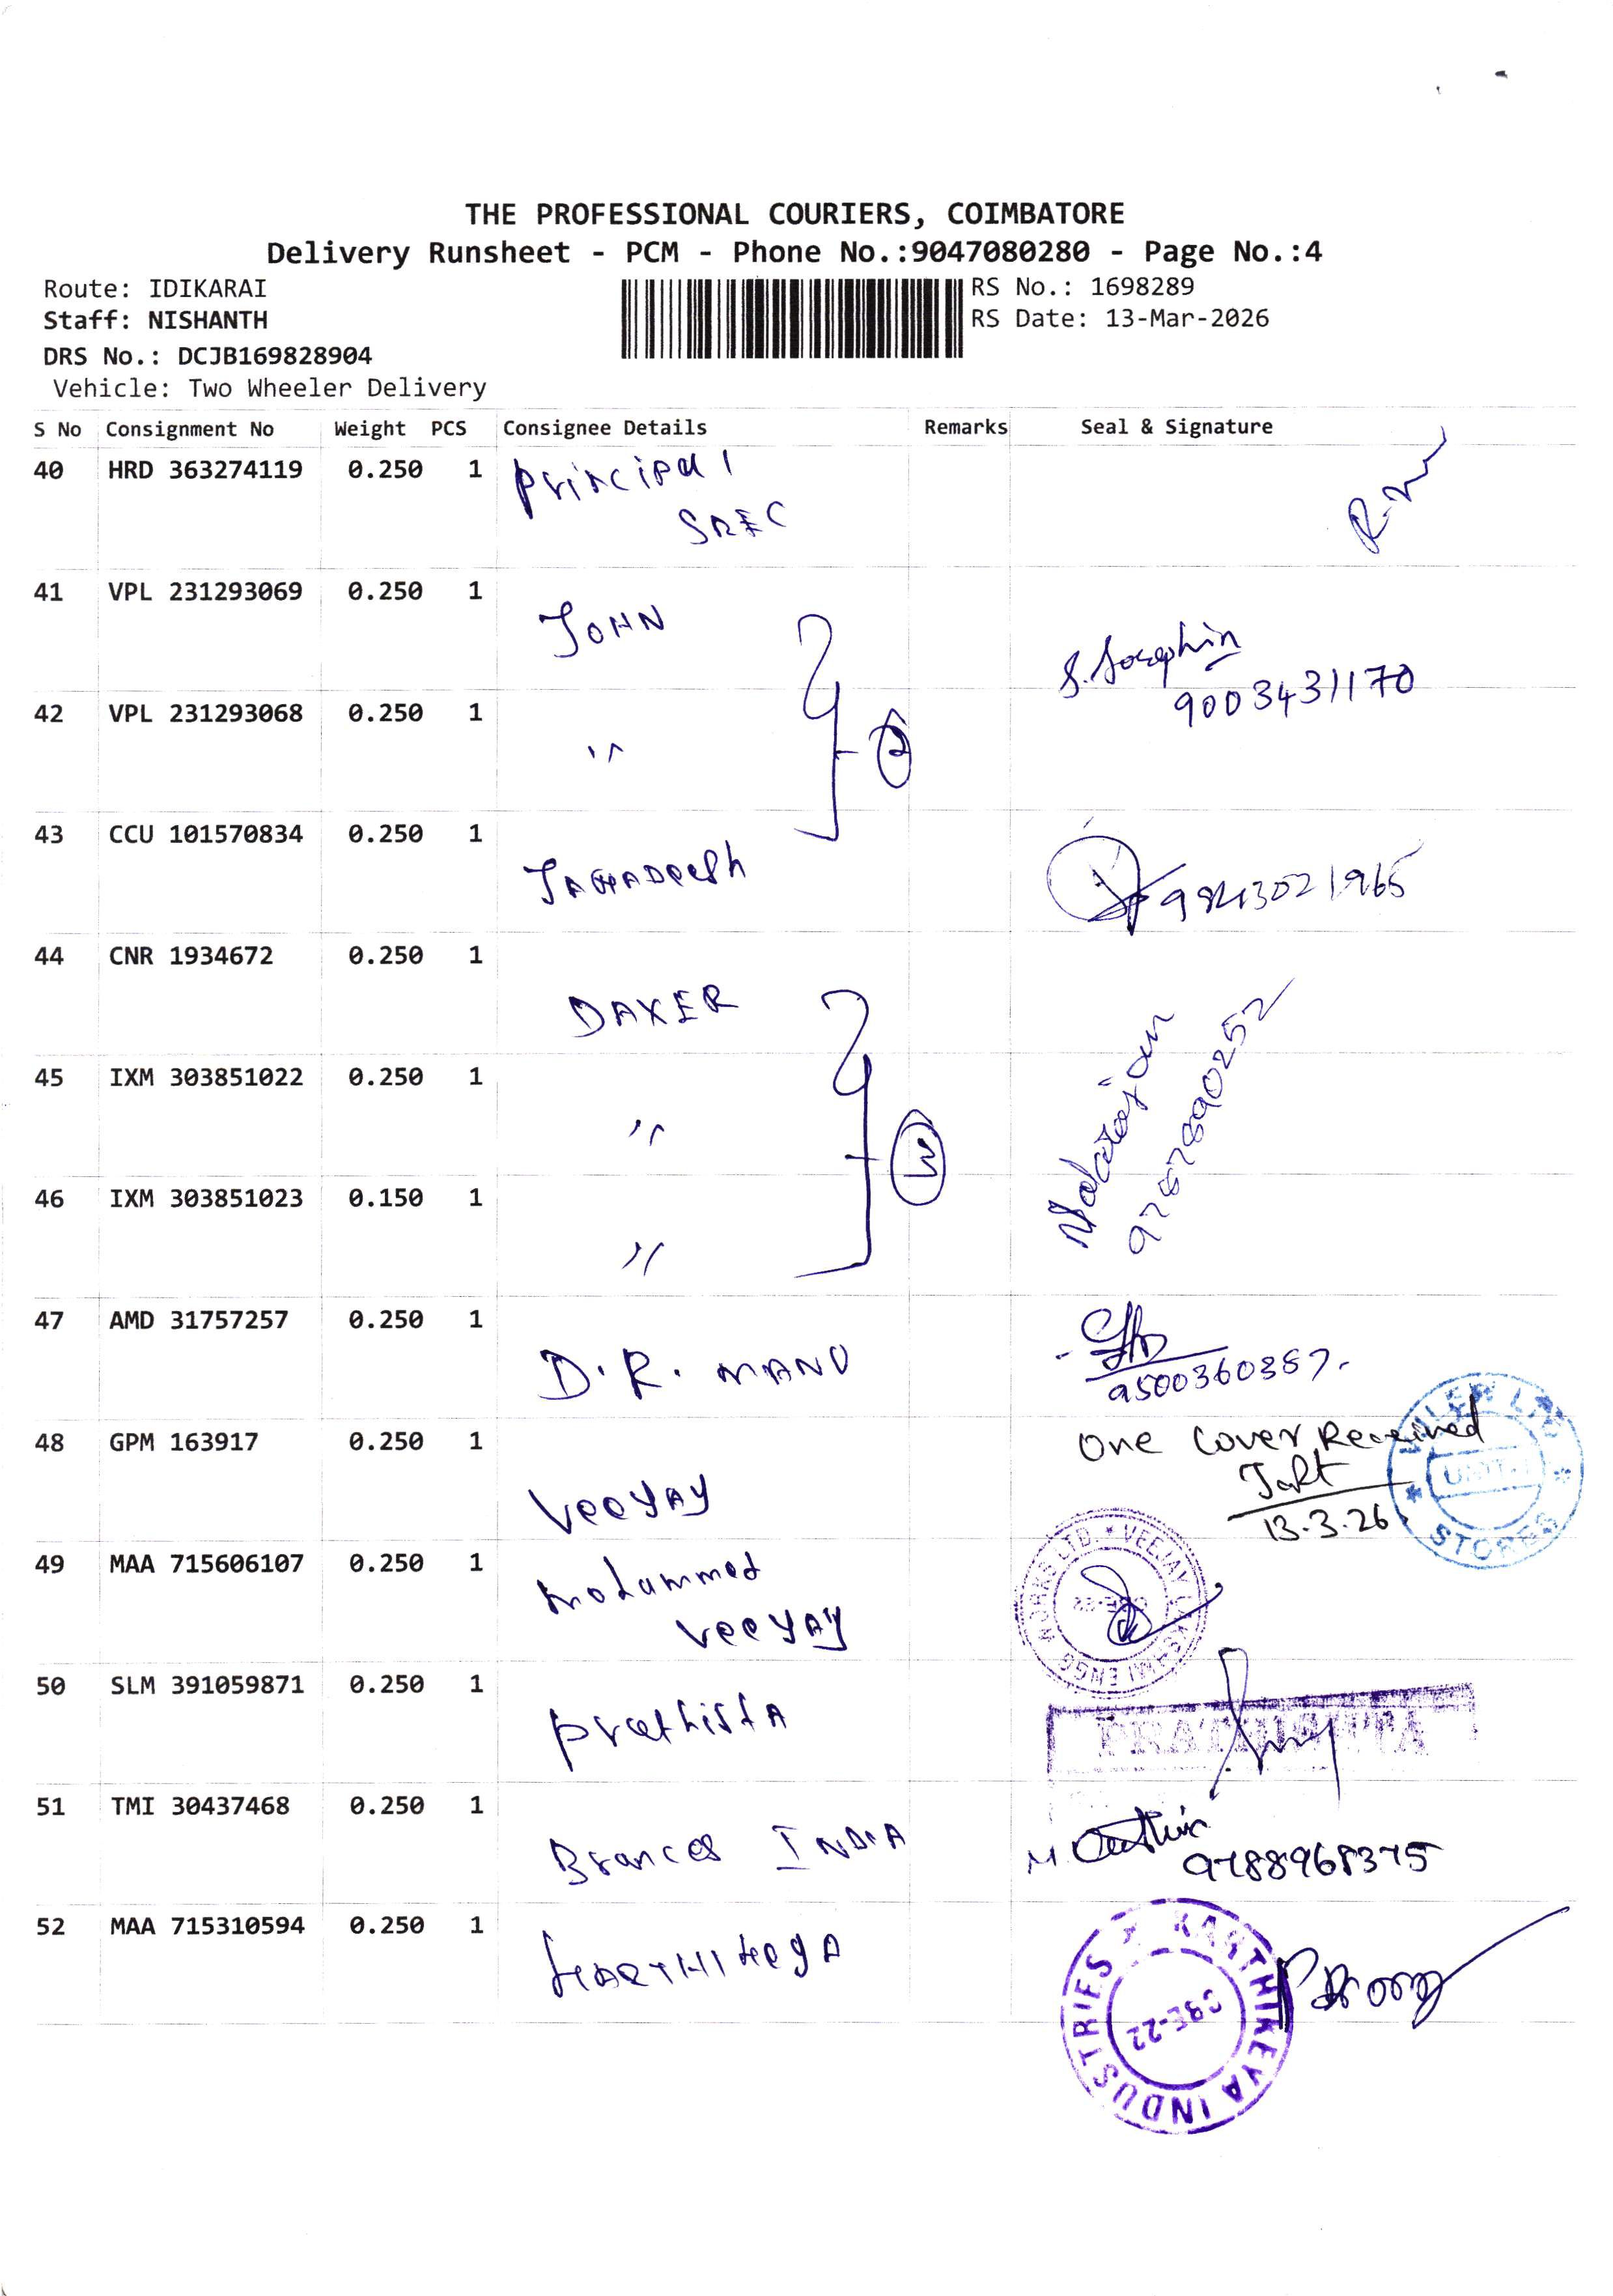 THE PROFESSIONAL COURIERS, COIMBATORE
Delivery Runsheet - PCM - Phone No.:9047080280 - Page No.:4
Route: IDIKARAI
Staff: NISHANTH
DRS No.: DCJB169828904
Vehicle: Two Wheeler Delivery
RS No.: 1698289
RS Date: 13-Mar-2026
S No Consignment No Weight PCS Consignee Details Remarks Seal & Signature
40 HRD 363274119 0.250 1 Principal
SREC
41 VPL 231293069 0.250 1 JOHN
S. Josephin
9003431170
42 VPL 231293068 0.250 1 "
43 CCU 101570834 0.250 1 JAGADeesh
44 CNR 1934672 0.250 1 DAXER
Natarajan
9787890252
45 IXM 303851022 0.250 1 "
46 IXM 303851023 0.150 1 "
47 AMD 31757257 0.250 1 D.R. MANO
9500360387.
48 GPM 163917 0.250 1 VeeyAy
One Cover Received
13.3.26
STORES
49 MAA 715606107 0.250 1 Mohammed
VeeyAy
WORKS LTD. * VEEJAY LAKSHMI ENGG
50 SLM 391059871 0.250 1 PrathistA
PRATHISHTA
51 TMI 30437468 0.250 1 Brances INDIA
9788968375
52 MAA 715310594 0.250 1 KARTHIKeyA
KARTHIKEYA INDUSTRIES
CBE-22